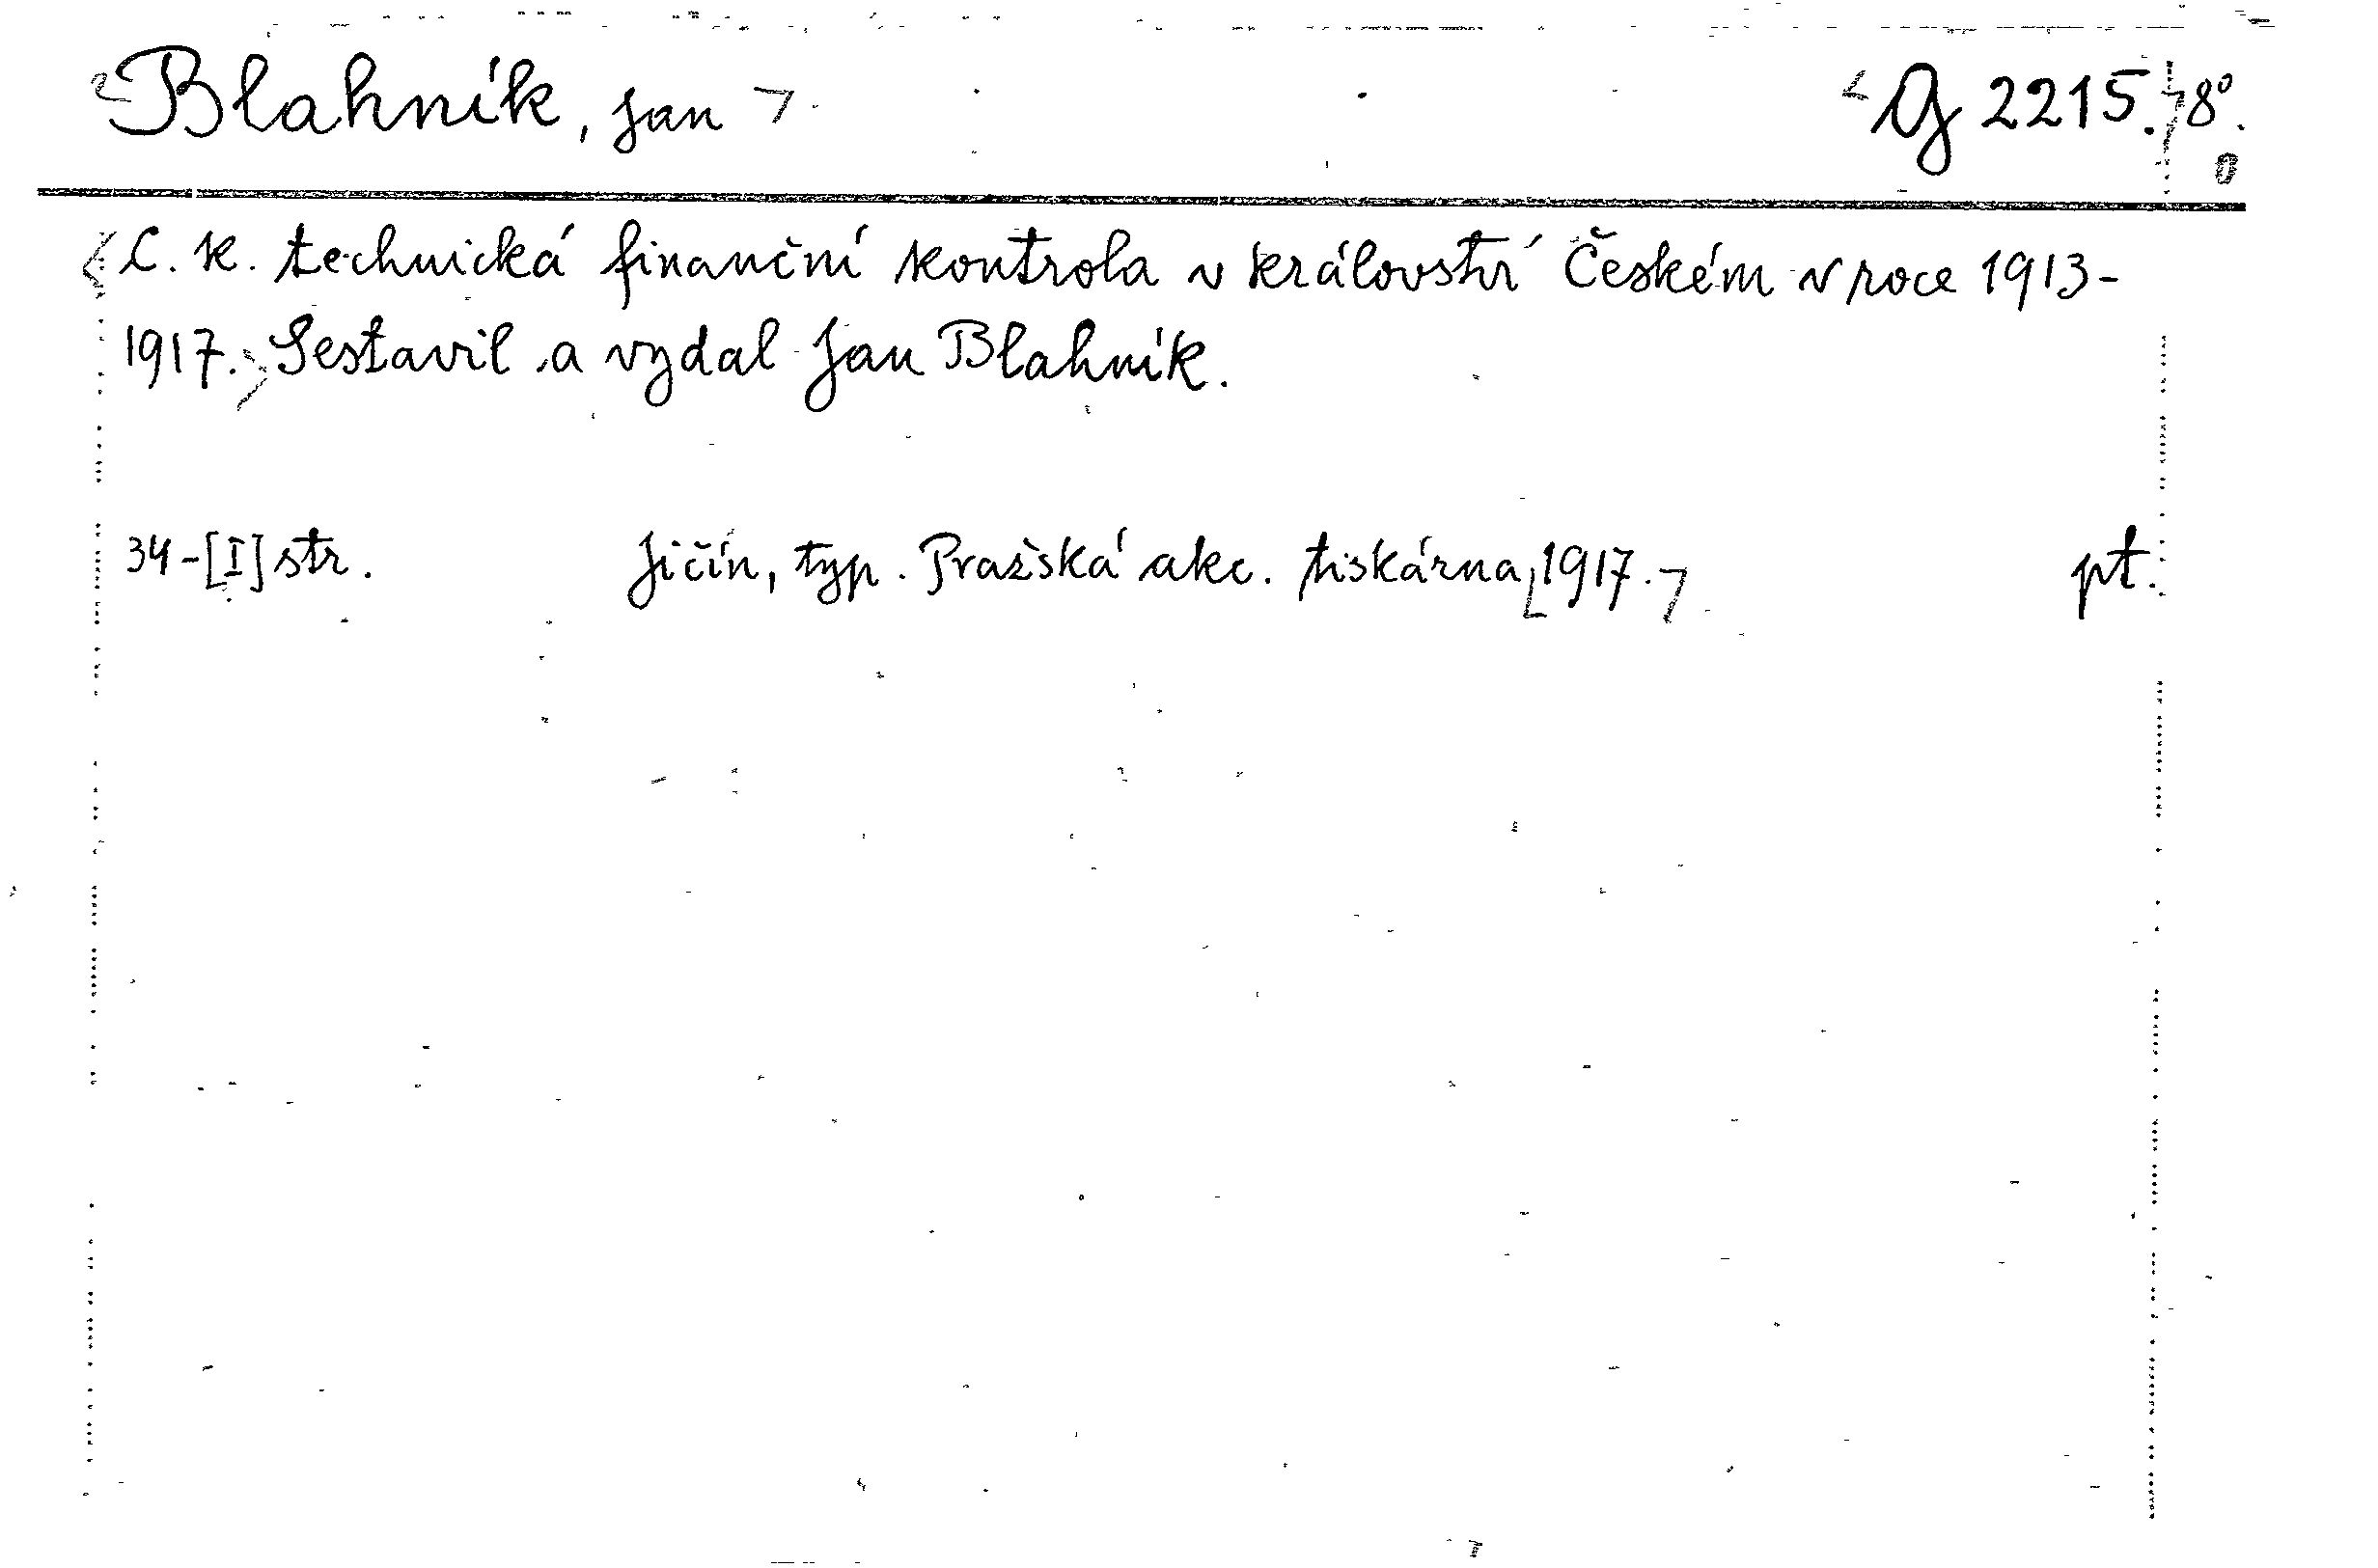 Blahník, Jan G 2215. 8°.
C. k. technická finanční kontrola v království Českém v roce 1913-
1917. Sestavil a vydal Jan Blahník.
34-[I] str. Jičín, typ. Pražská akc. tiskárna, 1917. pt.